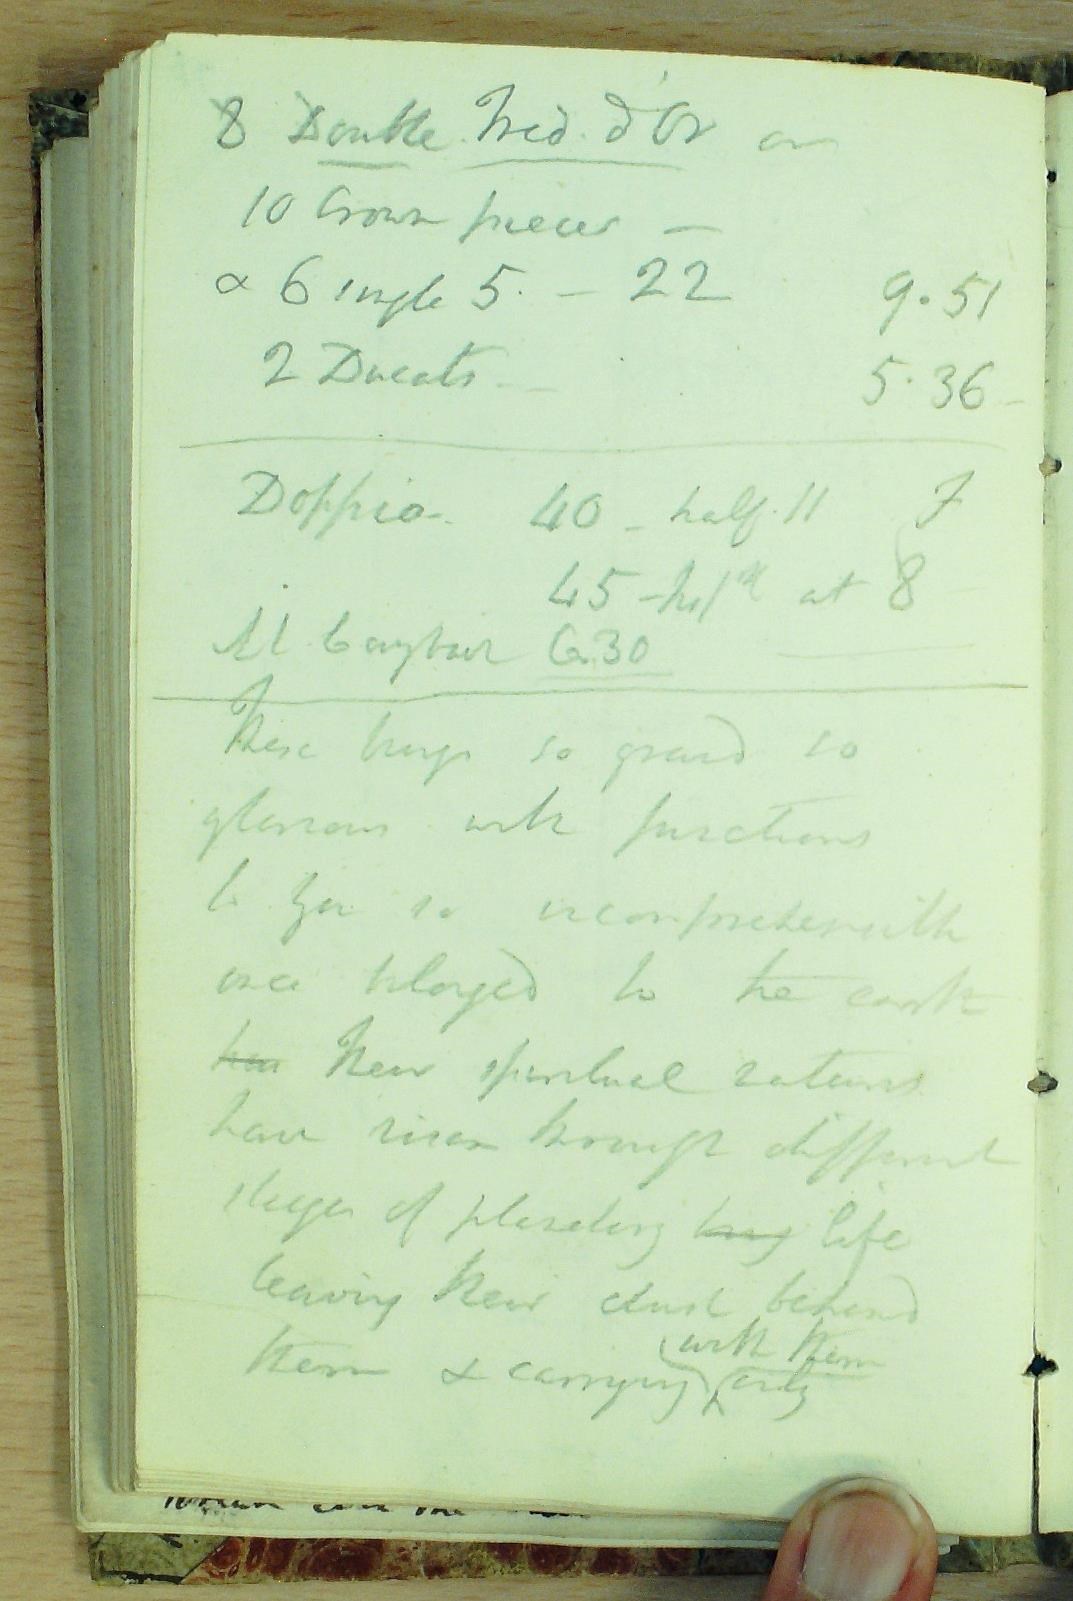 8 Double Fred. d'Or are
10 Crown pieces —
& 6 single 5. — 22 9.51
2 Ducats — 5.36 —
Doppia. 40 - half. 11 7
45 - at 8
At 6.30
These beings so grand so
glorious with functions
to you so incomprehensible
once belonged to the earth
their spiritual natures
have risen through different
stages of planetary life
leaving their dust behind
with them
them & carrying only